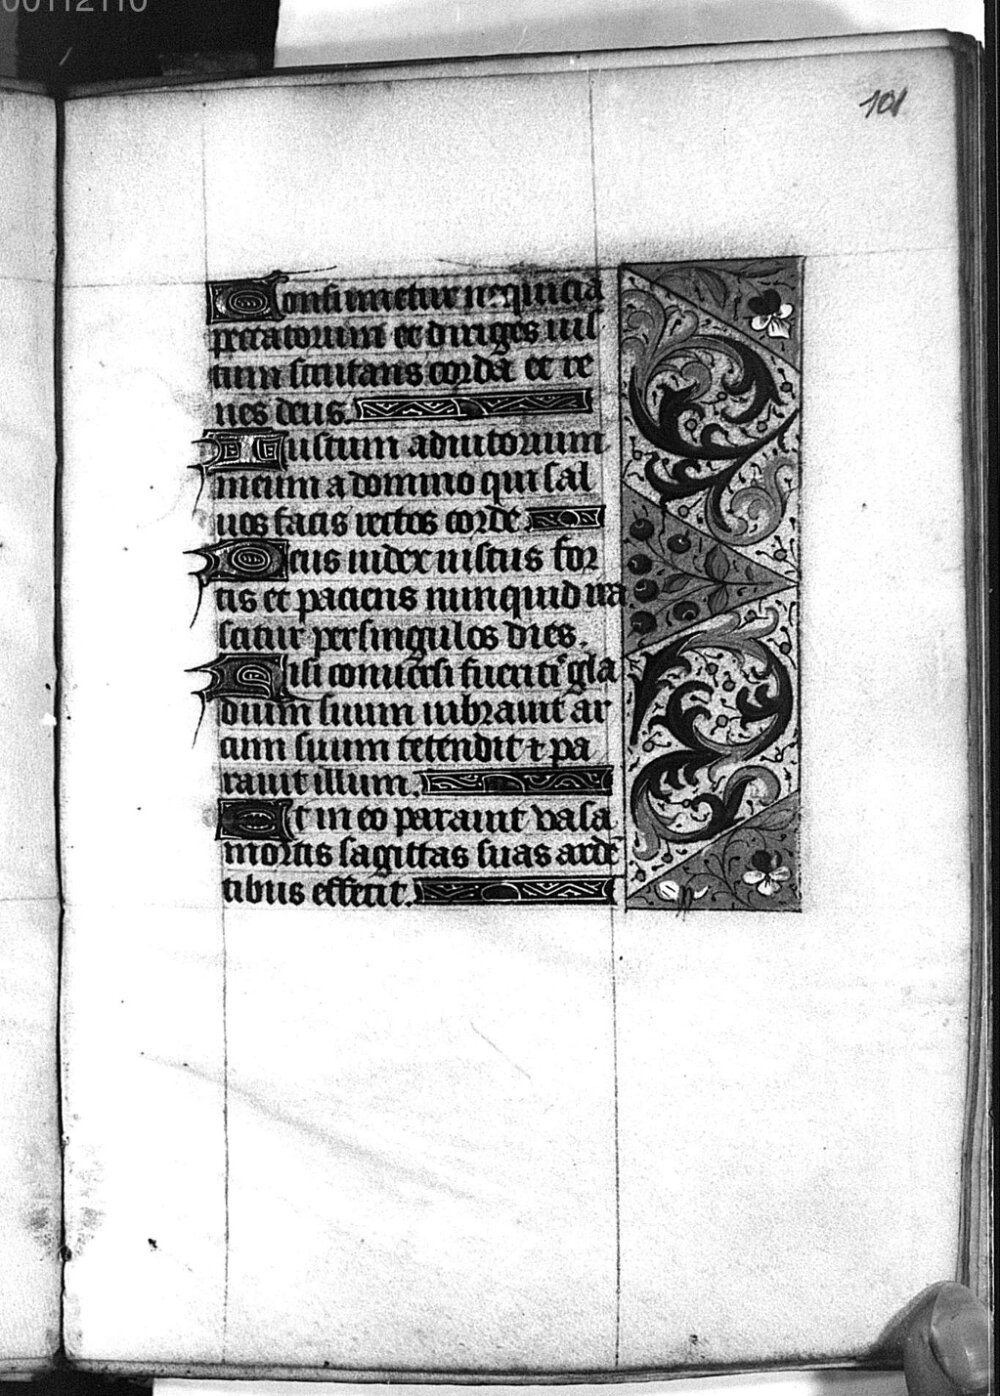 00112110
101
Consumetur nequicia
peccatorum et diriges ius
tum scrutans corda et re
nes deus.
Iustum adiutorium
meum a domino qui sal
uos facis rectos corde
Deus iudex iustus for
tis et paciens nunquid ira
scitur per singulos dies.
Nisi conuersi fueritis gla
dium suum uibrauit ar
cum suum tetendit ⁊ pa
rauit illum.
Et in eo parauit vasa
mortis sagittas suas ardē
tibus effecit.